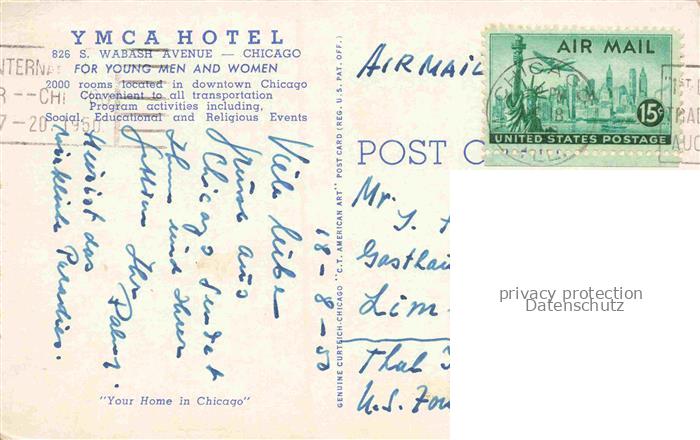 YMCA HOTEL
826 S. WABASH AVENUE — CHICAGO
FOR YOUNG MEN AND WOMEN
2000 rooms located in downtown Chicago
Convenient to all transportation
Program activities including,
Social, Educational and Religious Events
Viele liebe
Grüsse aus
Chicago sendet
Ihnen und Ihrer
Gattin Ihr
Hier ist das
wirkliche Paradies.
18-8-50
"Your Home in Chicago"
GENUINE CURTEICH-CHICAGO "C.T. AMERICAN ART" POST CARD (REG. U.S. PAT. OFF.)
AIRMAIL
POST C
Mr.
Gasthau
Lim
Thal
U.S. Zon
AIR MAIL
15¢
UNITED STATES POSTAGE
CHICAG
INTERNA
R--CHI
7-20 1950
TRA
AUG
privacy protection
Datenschutz